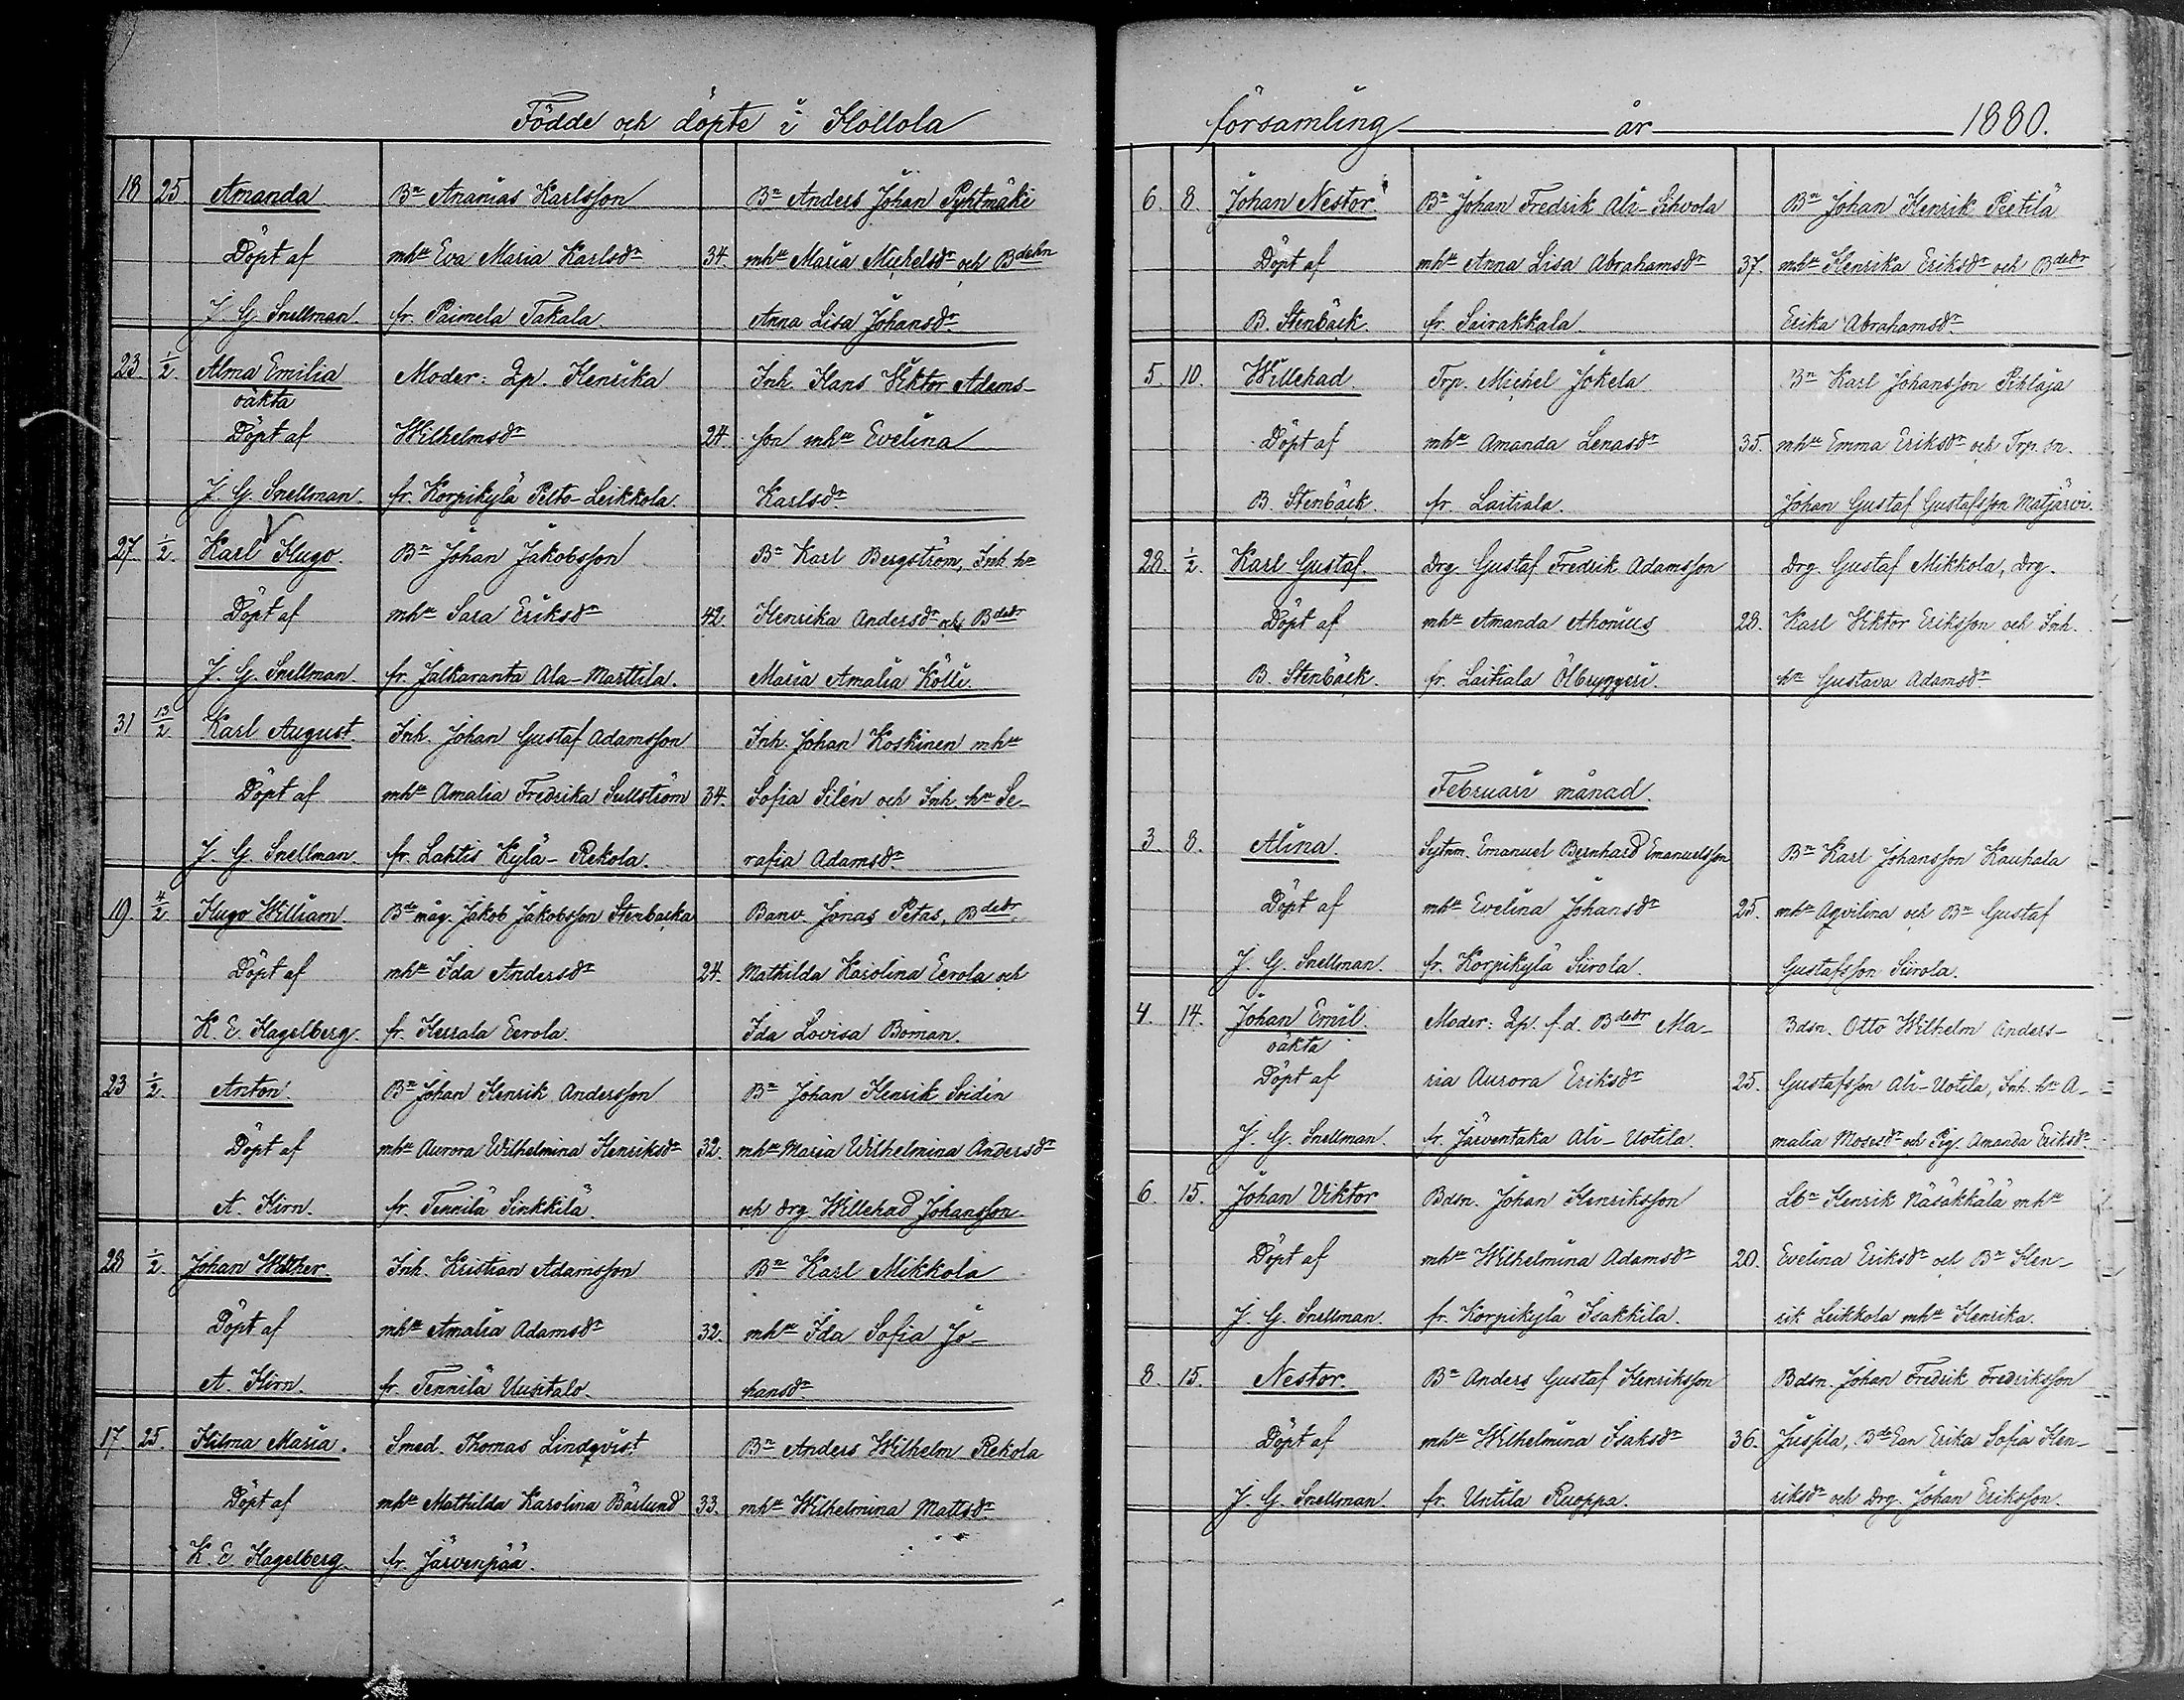 Födde och döpte i Hollola
18 25 Amanda Bn Ananias Karlsson Bn Anders Johan Pyhtmäki
Döpt af mhu Eva Maria Karlsdr 34. mhu Maria Michelsdr och Bdehn
J. G. Snellman. fr. Paimela Takala. Anna Lisa Johansdr
23. 1/2. Alma Emilia Moder: Qp. Henrika Inh. Hans Viktor Adams-
oäkta
Döpt af Wilhelmsdr 24. son mhu Evelina
J. G. Snellman. fr. Korpikylä Pelto-Leikkola. Karlsdr
27. 1/2. Karl Hugo. Bn Johan Jakobsson Bn Karl Bergström, Inh. hn
Döpt af mhu Sara Eriksdr 42. Henrika Andersdr och Bdedr
J. G. Snellman. fr. Jalkaranta Ala-Marttila. Maria Amalia Kölli.
31 13/2. Karl August. Inh. Johan Gustaf Adamsson Inh. Johan Koskinen mhu
Döpt af mhu Amalia Fredrika Sullström 34. Sofia Silén och Inh. hn Se-
J. G. Snellman. fr. Lahtis Kylä-Rekola. rafia Adamsdr
19. 4/2. Hugo William Bde måg. Jakob Jakobsson Stenbacka Banv. Jonas Petas, Bdedr.
Döpt af mhu Ida Andersdr 24. Mathilda Karolina Eerola och
K. E. Hagelberg. fr. Herrala Eerola. Ida Lovisa Boman.
23 1/2. Anton. Bn Johan Henrik Andersson Bn Johan Henrik Soidin
Döpt af mhu Aurora Wilhelmina Henriksdr 32. mhu Maria Wilhelmina Andersdr
A. Hirn. fr. Tennilä Sinkkilä. och Drg. Willehad Johansson.
28 1/2. Johan Walther Inh. Kristian Adamsson Bn Karl Mikkola
Döpt af mhu Amalia Adamsdr 32. mhu Ida Sofia Jo-
A. Hirn. fr. Tennilä Uusitalo. hansdr
17. 25. Hilma Maria. Smed. Thomas Lindqvist Bn Anders Wilhelm Rekola
Döpt af mhu Mathilda Karolina Bärlund 33. mhu Wilhelmina Mattsdr
K. E. Hagelberg. fr. Järvenpää.
församling år 1880.
6. 8. Johan Nestor Bn Johan Fredrik Ali-Sehvola Bn Johan Henrik Pietilä
Döpt af mhu Anna Lisa Abrahamsdr 37. mhu Henrika Eriksdr och Bdedr
B. Stenbäck. fr. Sairakkala. Erika Abrahamsdr
5. 10. Willehad Trp. Michel Jokela Bn Karl Johansson Pihlaja
Döpt af mhu Amanda Lenasdr 35. mhu Emma Eriksdr och Trp. sn.
B. Stenbäck. fr. Laitiala. Johan Gustaf Gustafsson Matjärvi.
28. 1/2. Karl Gustaf. Drg. Gustaf Fredrik Adamsson Drg. Gustaf Mikkola, Drg.
Döpt af mhu Amanda Ahonius 28. Karl Viktor Eriksson och Inh.
B. Stenbäck. fr. Laitiala Ölbryggeri. hn Gustava Adamsdr
Februari månad.
3. 8. Alina. Sytnm. Emanuel Bernhard Emanuelsson Bn Karl Johansson Kauhala
Döpt af mhu Evelina Johansdr 25. mhu Aqvilina och Bn Gustaf
J. G. Snellman. fr. Korpikylä Siirola. Gustafsson Siirola.
4. 14. Johan Emil. Moder: Qp. f.d. Bdedr Ma- Bdsn. Otto Wilhelm Anders-
oäkta
Döpt af ria Aurora Eriksdr 25. Gustafsson Ali-Uotila, Inh. hn A-
J. G. Snellman. fr. Järventaka Ali-Uotila. malia Mosesdr och Pig. Amanda Eriksdr
6. 15. Johan Viktor Bdsn. Johan Henriksson Lbn Henrik Näsäkkälä mhu
Döpt af mhu Wilhelmina Adamsdr 20. Evelina Eriksdr och Bn Hen-
J. G. Snellman. fr. Korpikylä Isakkila. rik Leikkola mhu Henrika.
8. 15. Nestor. Bn Anders Gustaf Henriksson Bdsn. Johan Fredrik Fredriksson
Döpt af mhu Wilhelmina Isaksdr 36. Jusila, Bde Ean Erika Sofia Hen-
J. G. Snellman. fr. Untila Ruoppa. riksdr och Drg. Johan Eriksson.